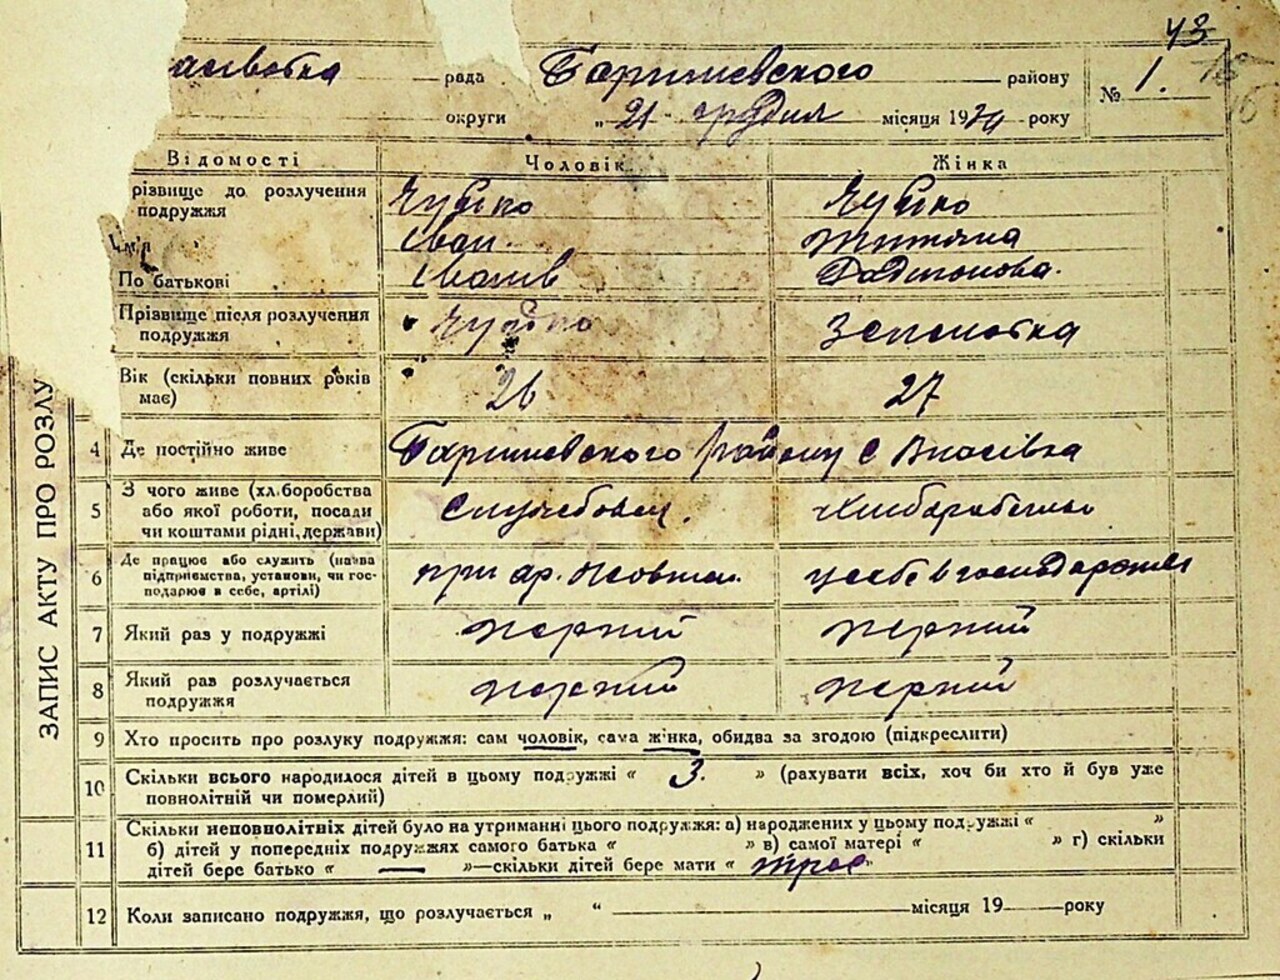 43
рада Баришевского району
№ 1.
округи „ 21 " грудня місяця 1929 року
Відомості Чоловік Жінка
різвище до розлучення подружжя Чубко Чубко
Ім'я Іван.
По батькові Іванів
Прізвище після розлучення подружжя Чубко
Вік (скільки повних років має) 26 27
4 Де постійно живе Баришевского району с Власівка
5 З чого живе (хл.боробства або якої роботи, посади чи коштами рідні, держави) Службовец.
6 Де працює або служить (назва підприємства, установи, чи господарює в себе, артілі)
7 Який раз у подружжі перший перший
8 Який раз розлучається подружжя перший перший
9 Хто просить про розлуку подружжя: сам чоловік, сама жінка, обидва за згодою (підкреслити)
10 Скільки всього народилося дітей в цьому подружжі „ 3. " (рахувати всіх, хоч би хто й був уже
повнолітній чи померлий)
11 Скільки неповнолітніх дітей було на утриманні цього подружжя: а) народжених у цьому подружжі „ "
б) дітей у попередніх подружжях самого батька „ " в) самої матері „ " г) скільки
дітей бере батько „ — "—скільки дітей бере мати „ троє "
12 Коли записано подружжя, що розлучається „ " місяця 19 року
ЗАПИС АКТУ ПРО РОЗЛУ